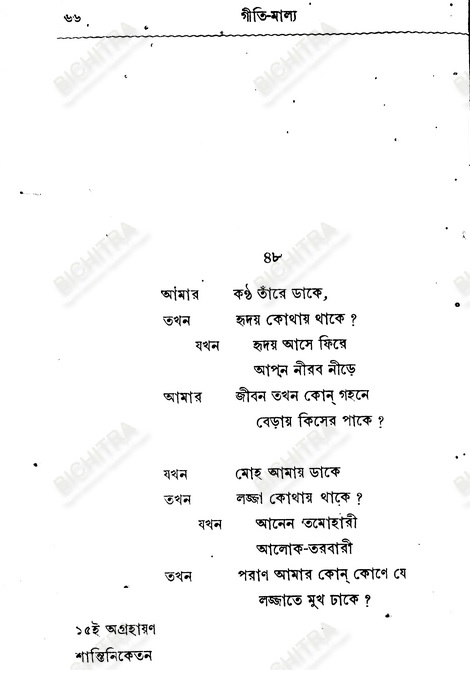 ৬৬ গীতি-মাল্য
৪৮
আমার কণ্ঠ তাঁরে ডাকে,
তখন হৃদয় কোথায় থাকে ?
যখন হৃদয় আসে ফিরে
আপন নীরব নীড়ে
আমার জীবন তখন কোন্ গহনে
বেড়ায় কিসের পাকে ?
যখন মোহ আমায় ডাকে
তখন লজ্জা কোথায় থাকে ?
যখন আনেন তমোহারী
আলোক-তরবারী
তখন পরাণ আমার কোন্ কোণে যে
লজ্জাতে মুখ ঢাকে ?
১৫ই অগ্রহায়ণ
শান্তিনিকেতন
BICHITRA
BICHITRA
BICHITRA
BICHITRA
BICHITRA
BICHITRA
BICHITRA
BICHITRA
BICHITRA